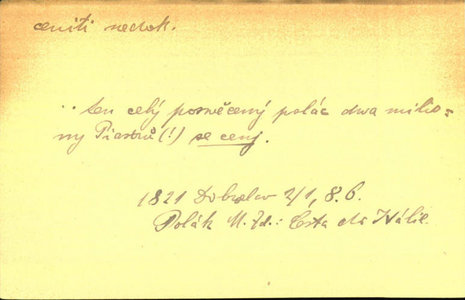 ceniti nedok.
.. ten celý posvěcený palác dwa milio=
ny Piastrů (!) se cenj.
1821 Dobroslav 2/1, 8. 6.
Polák M. Zd.: Cesta do Itálie